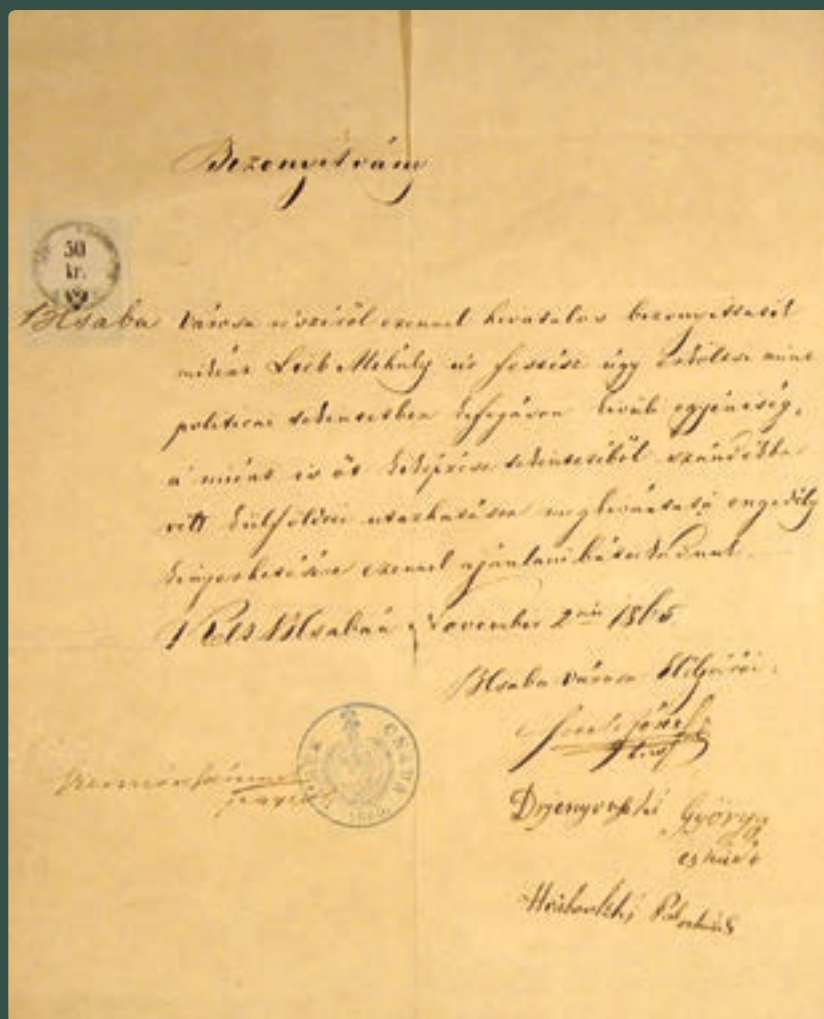 Bizonyitvány
50
kr.
BCsaba városa részéről ezennel hivatalos bizonyittatik
miként Lieb Mihály úr festész úgy erkölcsi mint
politicai tekintetben kifogáson kivüli egyéniség,
a miért is őt kiképzése tekintetéből szándékba
vett külföldre utazhatásra megkivántató engedély
kinyerhetésére ezennel ajánlani bátorkodunk.
Kelt BCsabán November 2án 1865
BCsaba városa Elöljárói.
József
CSABA
Drjenyovszki György
esküdt